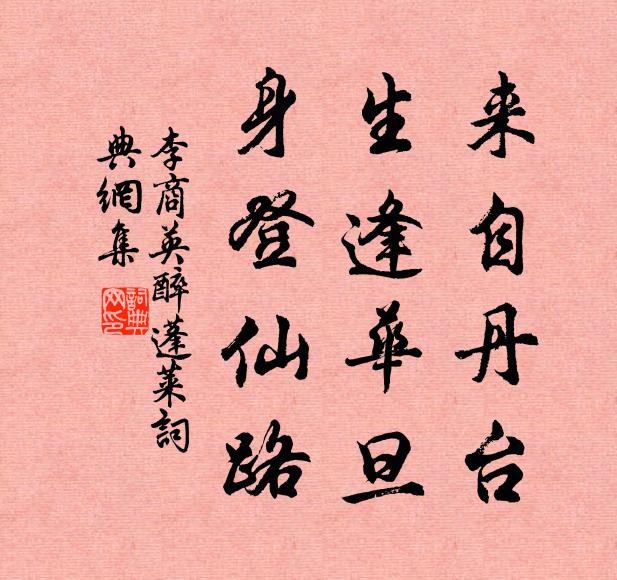 来自丹台
生逢华旦
身登仙路
李商英醉蓬莱詞
典網集
詞典网印